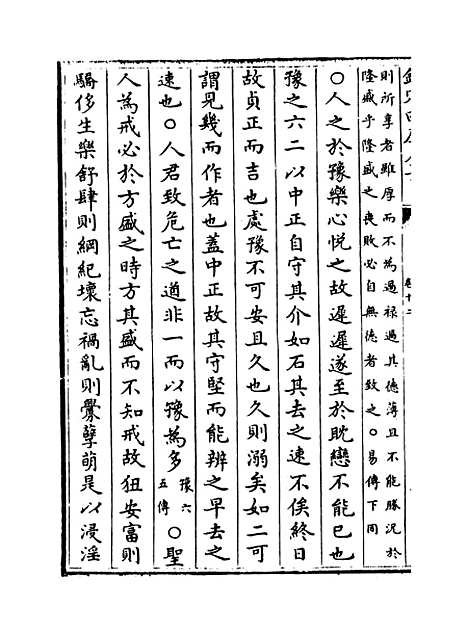 欽定四庫全書
卷十二
則所享者雖厚而不為過祿過其德薄且不能勝況於
隆盛乎隆盛之喪敗必自無德者致之○易傳下同
○人之於豫樂心悅之故遲遲遂至於耽戀不能已也
豫之六二以中正自守其介如石其去之速不俟終日
故貞正而吉也處豫不可安且久也久則溺矣如二可
謂見幾而作者也蓋中正故其守堅而能辨之早去之
速也○人君致危亡之道非一而以豫為多豫六五傳○聖
人為戒必於方盛之時方其盛而不知戒故狃安富則
驕侈生樂舒肆則綱紀壞忘禍亂則釁孽萌是以浸淫